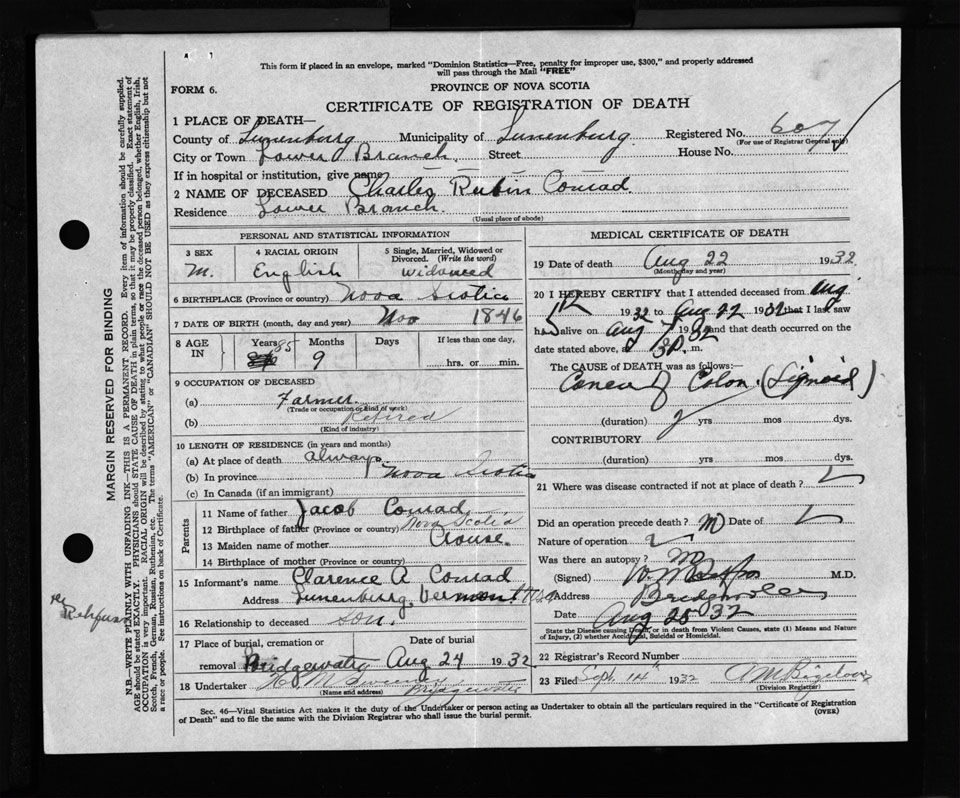 This form if placed in an envelope, marked "Dominion Statistics—Free, penalty for improper use, $300," and properly addressed
will pass through the Mail "FREE"
FORM 6.
PROVINCE OF NOVA SCOTIA
CERTIFICATE OF REGISTRATION OF DEATH
1 PLACE OF DEATH—
County of Lunenburg Municipality of Lunenburg Registered No. 607
(For use of Registrar General only)
City or Town Lower Branch Street House No.
If in hospital or institution, give name
2 NAME OF DECEASED Charles Rubin Conrad
Residence Lower Branch.
(Usual place of abode)
PERSONAL AND STATISTICAL INFORMATION
3 SEX 4 RACIAL ORIGIN 5 Single, Married, Widowed or Divorced. (Write the word)
M. English widowed
6 BIRTHPLACE (Province or country) Nova Scotia
7 DATE OF BIRTH (month, day and year) Nov 1846
8 AGE IN Years Months Days If less than one day,
85 9 hrs. or min.
9 OCCUPATION OF DECEASED
(a) Farmer.
(Trade or occupation or kind of work)
(b) Retired
(Kind of industry)
10 LENGTH OF RESIDENCE (in years and months)
(a) At place of death always
(b) In province Nova Scotia
(c) In Canada (if an immigrant)
Parents
11 Name of father Jacob Conrad
12 Birthplace of father (Province or country) Nova Scotia
13 Maiden name of mother Crouse.
14 Birthplace of mother (Province or country)
15 Informant's name Clarence A Conrad
Address Lunenburg, Vermont USA
16 Relationship to deceased son.
17 Place of burial, cremation or Date of burial
removal Bridgewater Aug 24 1932
18 Undertaker Bridgewater
(Name and address)
MEDICAL CERTIFICATE OF DEATH
19 Date of death Aug 22 1932
(Month, day and year)
20 I HEREBY CERTIFY that I attended deceased from Aug
5th 1932 to Aug 22 1932 that I last saw
h alive on Aug 7 1932 and that death occurred on
the date stated above, at 3 P. m.
The CAUSE of DEATH was as follows:—
Cancer of Colon. (Sigmoid)
(duration) yrs mos dys.
CONTRIBUTORY
(duration) yrs mos dys.
21 Where was disease contracted if not at place of death?
Did an operation precede death? No Date of
Nature of operation
Was there an autopsy? No
(Signed) M.D.
Address Bridgewater
Date Aug 25 32
State the Disease causing Death, or in death from Violent Causes, state (1) Means and Nature
of Injury, (2) whether Accidental, Suicidal or Homicidal.
22 Registrar's Record Number
23 Filed Sept 14 1932 A M Bigelow
(Division Registrar)
Sec. 46—Vital Statistics Act makes it the duty of the Undertaker or person acting as Undertaker to obtain all the particulars required in the "Certificate of Registration
of Death" and to file the same with the Division Registrar who shall issue the burial permit.
(OVER)
MARGIN RESERVED FOR BINDING
N.B.—WRITE PLAINLY WITH UNFADING INK—THIS IS A PERMANENT RECORD. Every item of information should be carefully supplied.
AGE should be stated EXACTLY. PHYSICIANS should STATE CAUSE OF DEATH in plain terms, so that it may be properly classified. Exact statement of
OCCUPATION is very important. RACIAL ORIGIN will be described by stating to what people or race the deceased person belonged, whether English, Irish,
Scotch, French, German, Russian, Ruthenian, etc. The terms "AMERICAN" or "CANADIAN" SHOULD NOT BE USED as they express citizenship but not
a race or people. See instructions on back of Certificate.